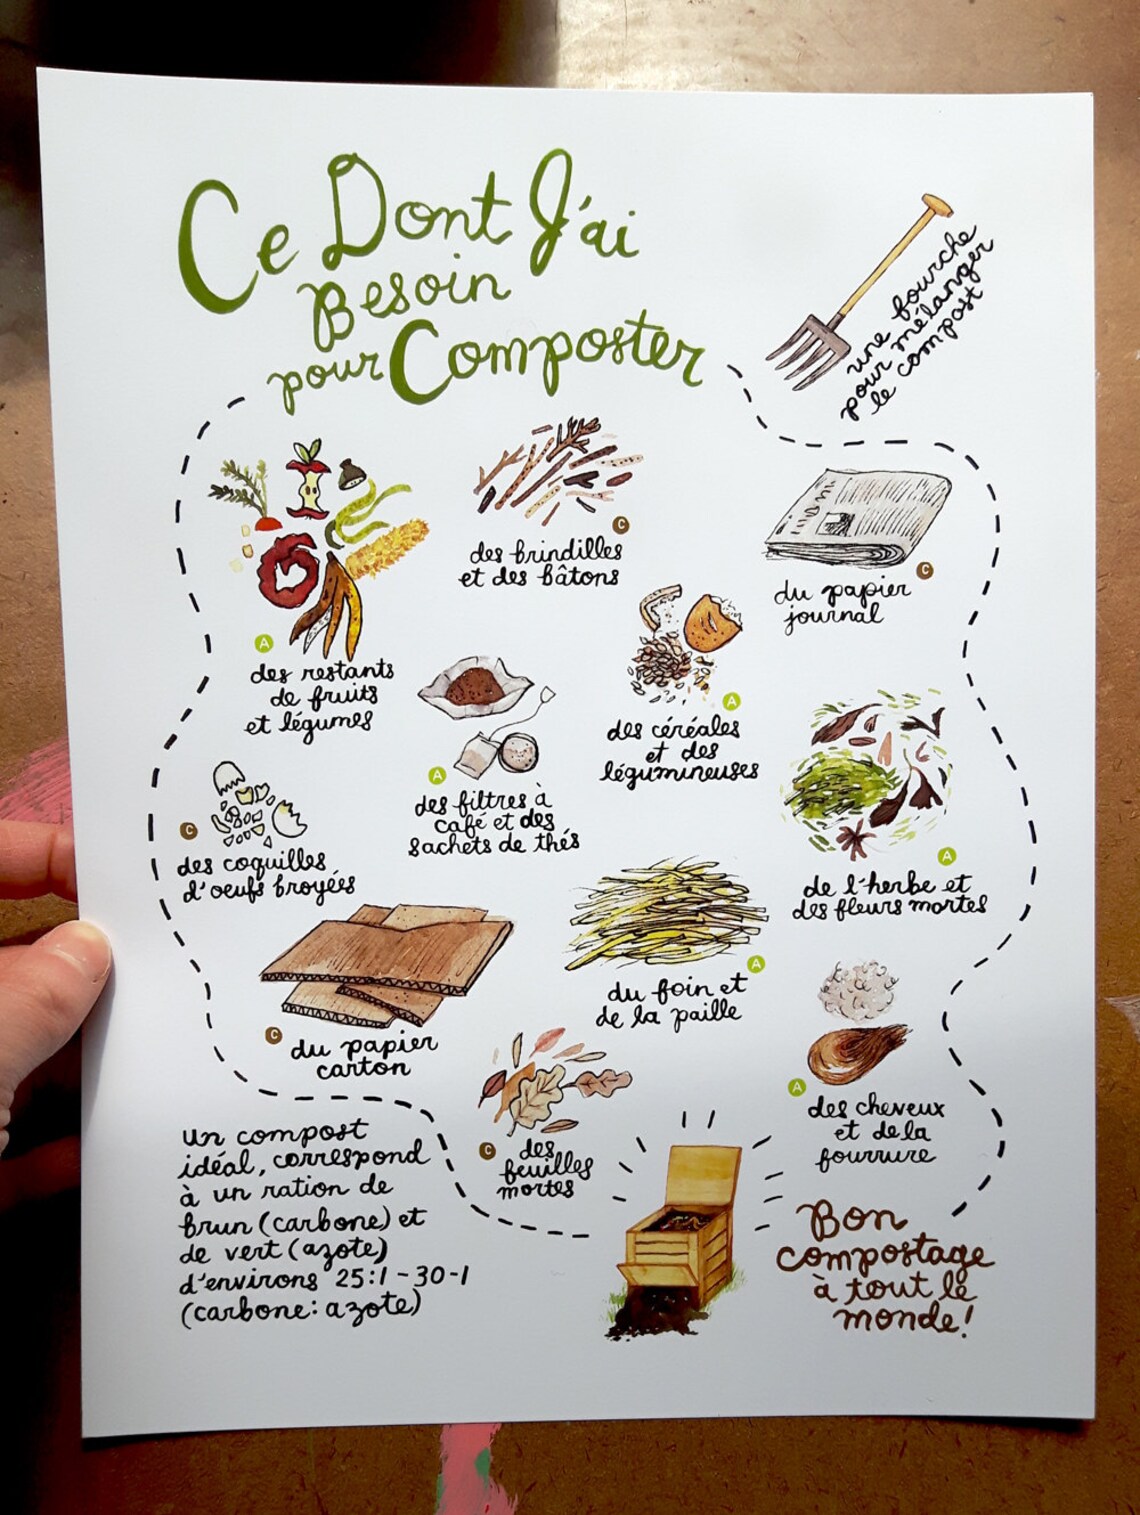 Ce Dont J'ai
Besoin
pour Composter
une fourche
pour mélanger
le compost
C
des brindilles
et des bâtons
C
du papier
journal
A
des restants
de fruits
et légumes
A
des céréales
et des
légumineuses
A
des filtres à
café et des
sachets de thés
C
des coquilles
d'oeufs broyées
A
de l'herbe et
des fleurs mortes
A
du foin et
de la paille
C
du papier
carton
C
des
feuilles
mortes
A
des cheveux
et de la
fourrure
un compost
idéal, correspond
à un ration de
brun (carbone) et
de vert (azote)
d'environs 25:1-30-1
(carbone: azote)
Bon
compostage
à tout le
monde!